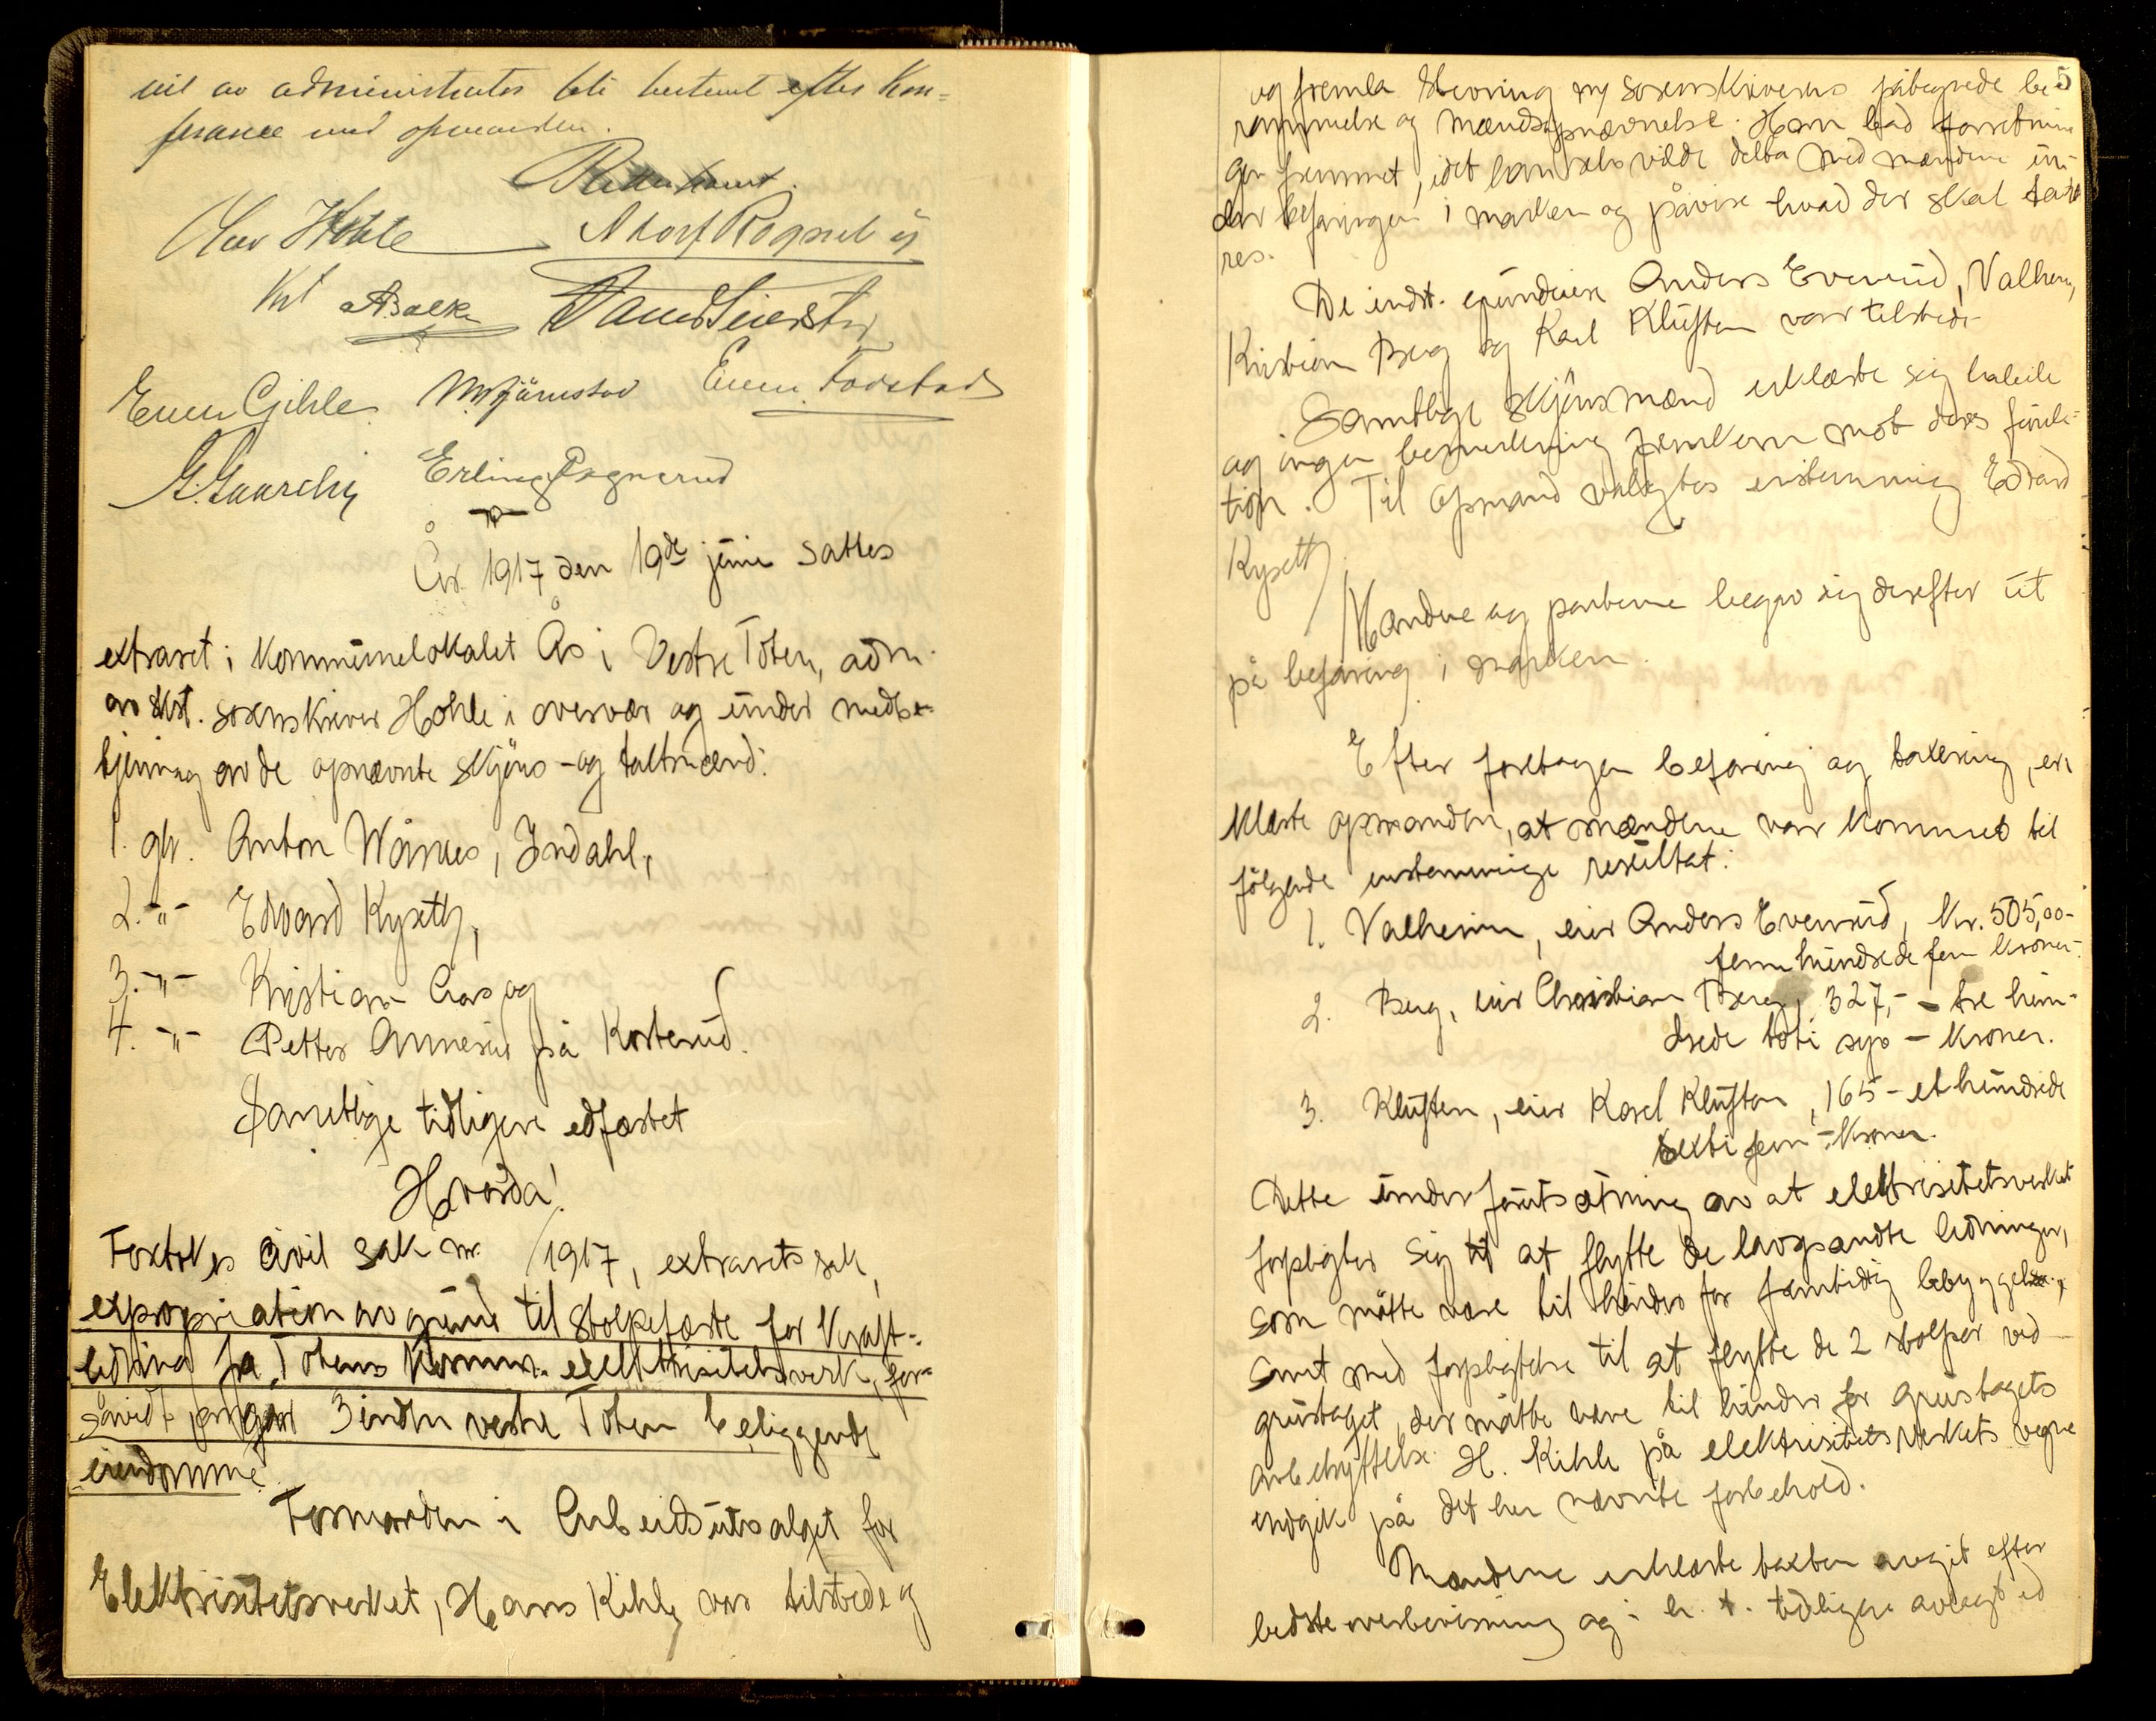 vil av administrator bli bestemt efter Kon=
ferance med opmanden.
Olav Hohle Adolf Rognerud
A Balke
Even Gihle Even Fodstad
G. Gaarder Erling Rognerud
År 1917 den 19de juni sattes
extraret i kommunelokalet Ås i Vestre Toten, adm.
av kst. sorenskriver Hohle i overvær og under medbe-
tjening av de opnævnte skjöns- og taktmænd:
1. gbr. Anton Wårnes, Indahl,
2. -"- Edvard Kyseth,
3. -"- Kristian Aas og
4. -"- Petter Annerud på Kosterud.
Samtlige tidligere edfæstet
Hvorda!
Foretokes civil sak nr. /1917, extrarets sak,
expropriation av grund til stolpefæste for kraft-
ledning fra Totens Komm. elektrisitetsverk, for-
såvidt angår 3 inden vestre Toten beliggende
eiendomme.
Formanden i Arbeidsutvalget for
Elektrisitetsverket, Hans Kihle var tilstede og
5
og fremla stevning m/ sorenskriverens påtegnede be-
rammelse og mændsopnævnelse. Han bad forretnin-
gen fremmet, idet han selv vilde delta med mændene un-
der befaringen i marken og påvise hvad der skal takse-
res.
De indst. grundeiere Anders Evenrud, Valheim,
Kristian Berg og Karl Kluften var tilstede.
Samtlige skjönsmænd erklærte sig habile
og ingen bemerkning fremkom mot deres funk-
tion. Til opmand valgtes enstemmig Edvard
Kyseth.
Mændene og parterne begav sig derefter ut
på befaring i marken.
Efter foretagen befaring og taksering, er-
klærte opmanden, at mændene var kommet til
fölgende enstemmige resultat:
1. Valheim, eier Anders Evenrud, Kr. 505,00-
femhundrede fem kroner.-
2. Berg, eier Christian Berg, 327,- - tre hun-
drede toti syv - kroner.
3. Kluften, eier Karl Kluften, 165 - et hundrede
sexti fem - kroner.
Dette under forutsætning av at elektrisitetsverket
forpligter sig til at flytte de lavspændte ledninger,
som måtte være til hinder for framtidig bebyggelse,
samt med forpligtelse til at flytte de 2 stolper ved
grustaget, der måtte være til hinder for grustagets
utbenyttelse. H. Kihle på elektrisitetsverkets vegne
indgik på det her nævnte forbehold.
Mændene erklærte taksten avgit efter
bedste overbevisning og i h. t. tidligere avlagt ed